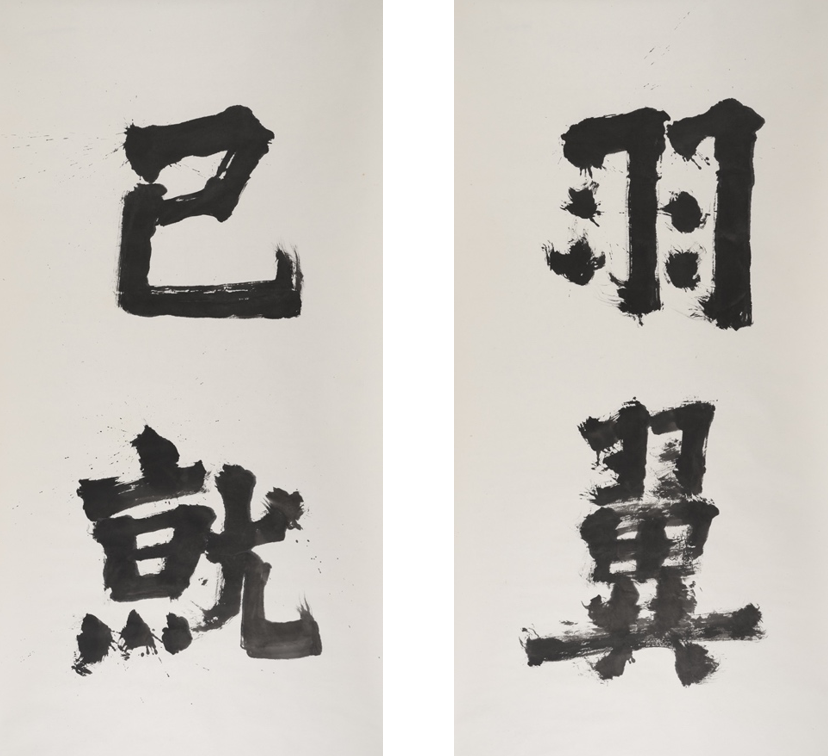 羽翼
已就